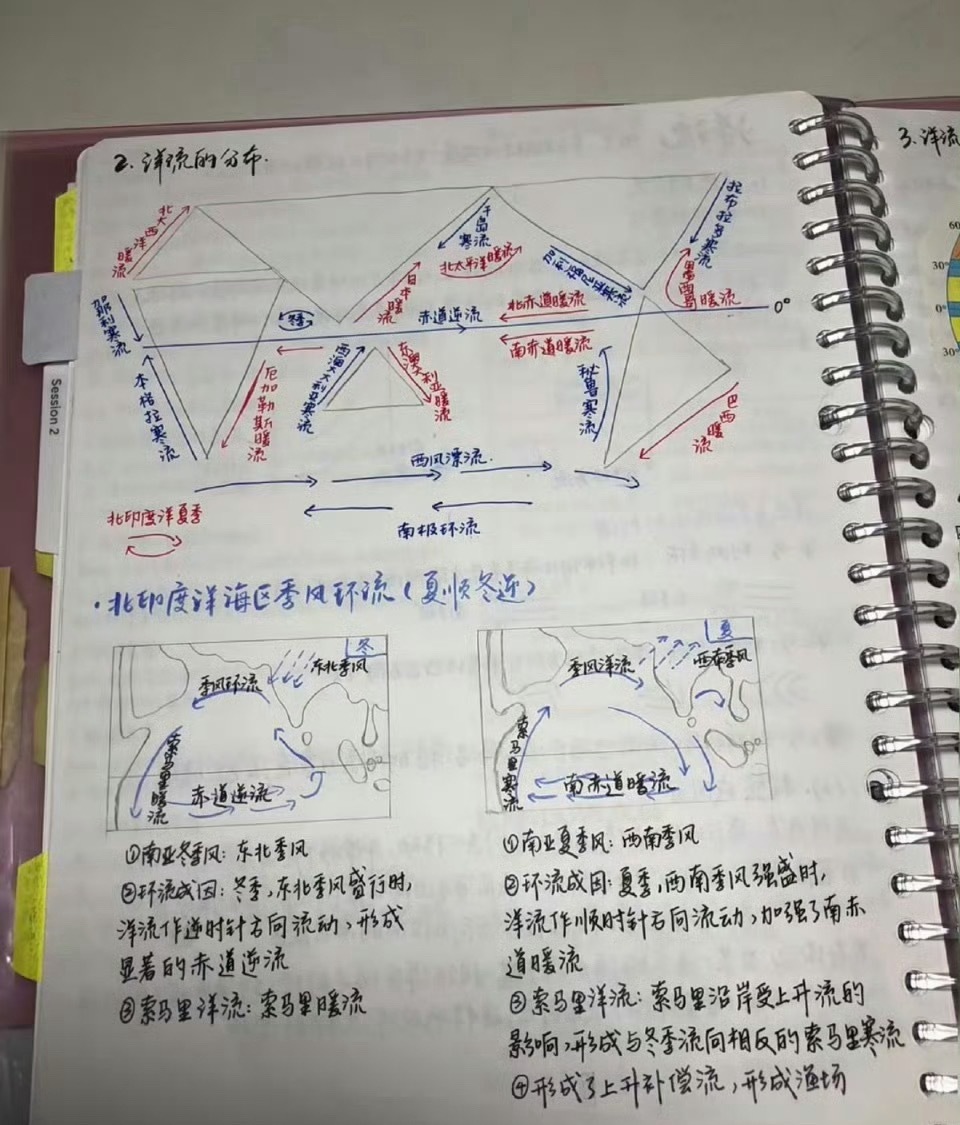 2. 洋流的分布.
3. 洋流
北大西洋暖流
千岛寒流
拉布拉多寒流
北太平洋暖流
日本暖流
加利福尼亚寒流
墨西哥暖流
加那利寒流
冬季
赤道逆流
北赤道暖流
0°
南赤道暖流
本格拉寒流
厄加勒斯暖流
西澳大利亚寒流
东澳大利亚暖流
秘鲁寒流
巴西暖流
Session 2
西风漂流.
北印度洋夏季
南极环流
·北印度洋海区季风环流(夏顺冬逆)
冬
东北季风
季风环流
索马里暖流
赤道逆流
①南亚冬季风: 东北季风
②环流成因: 冬季,东北季风盛行时,
洋流作逆时针方向流动,形成
显著的赤道逆流
③索马里洋流: 索马里暖流
夏
季风洋流
西南季风
索马里寒流
南赤道暖流
①南亚夏季风: 西南季风
②环流成因: 夏季,西南季风强盛时,
洋流作顺时针方向流动,加强了南赤
道暖流
③索马里洋流: 索马里沿岸受上升流的
影响,形成与冬季流向相反的索马里寒流
④形成了上升补偿流,形成渔场
60
30°
0°
30°